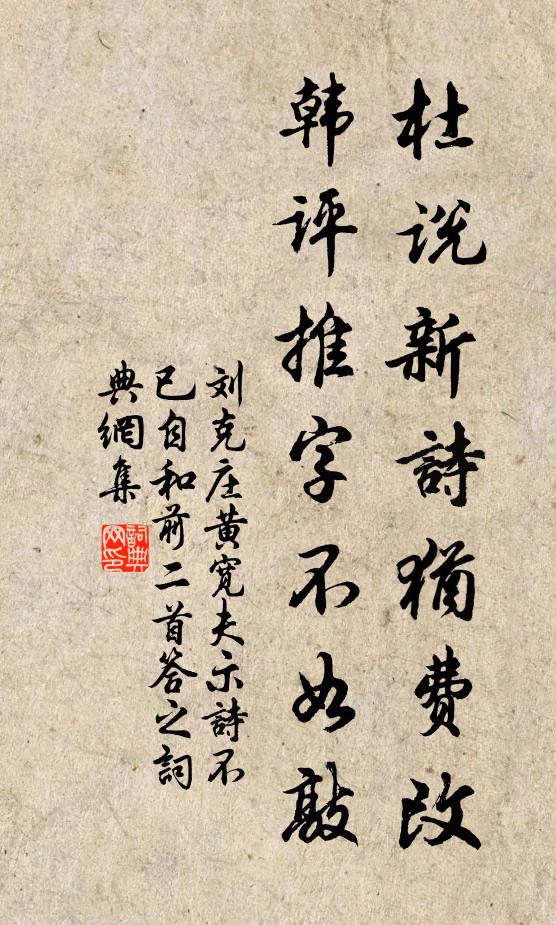 杜说新詩猶费改
韩评推字不如敲
刘克庄黄宽夫示詩不
已自和前二首答之詞
典網集
詞典网印